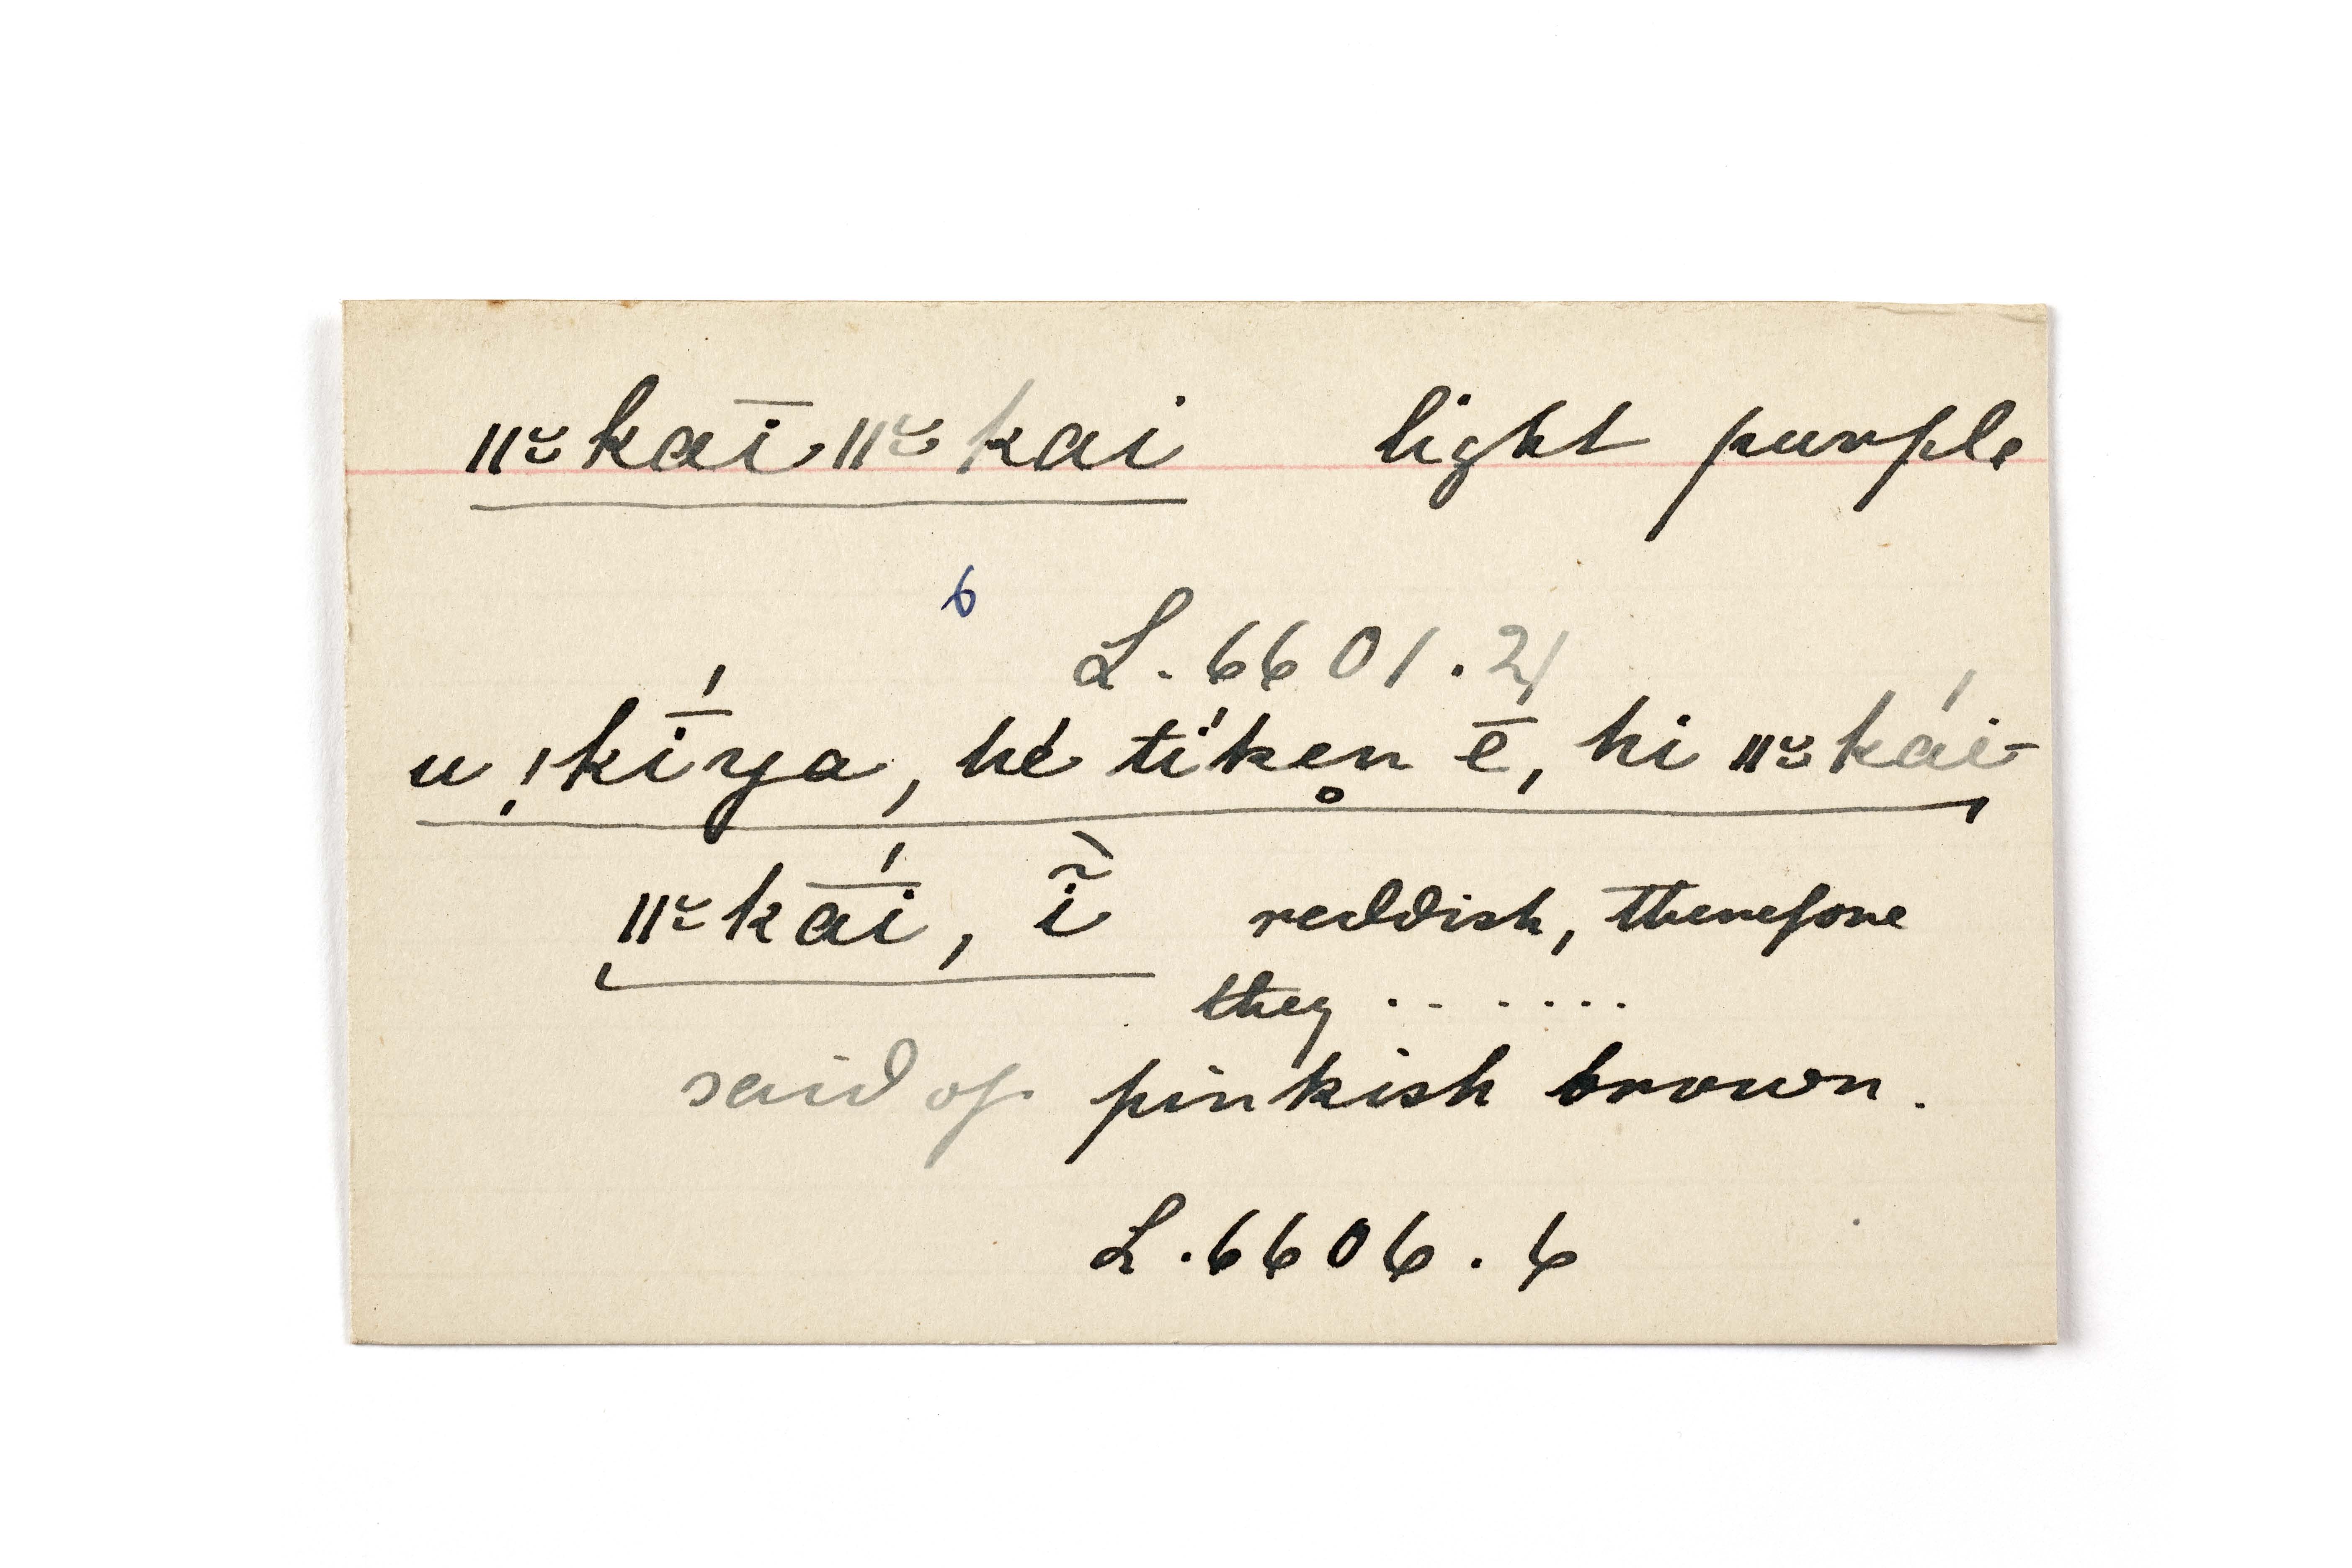 ǁ̆k͞aiǁ̆kai light purple
6
L. 6601.21
u !kī́ya, hé tíken̥ ē, hi ǁ̆kái-
ǁ̆k͞ái, ĩ̀ reddish, therefore
they .......
said of pinkish brown.
L. 6606.6